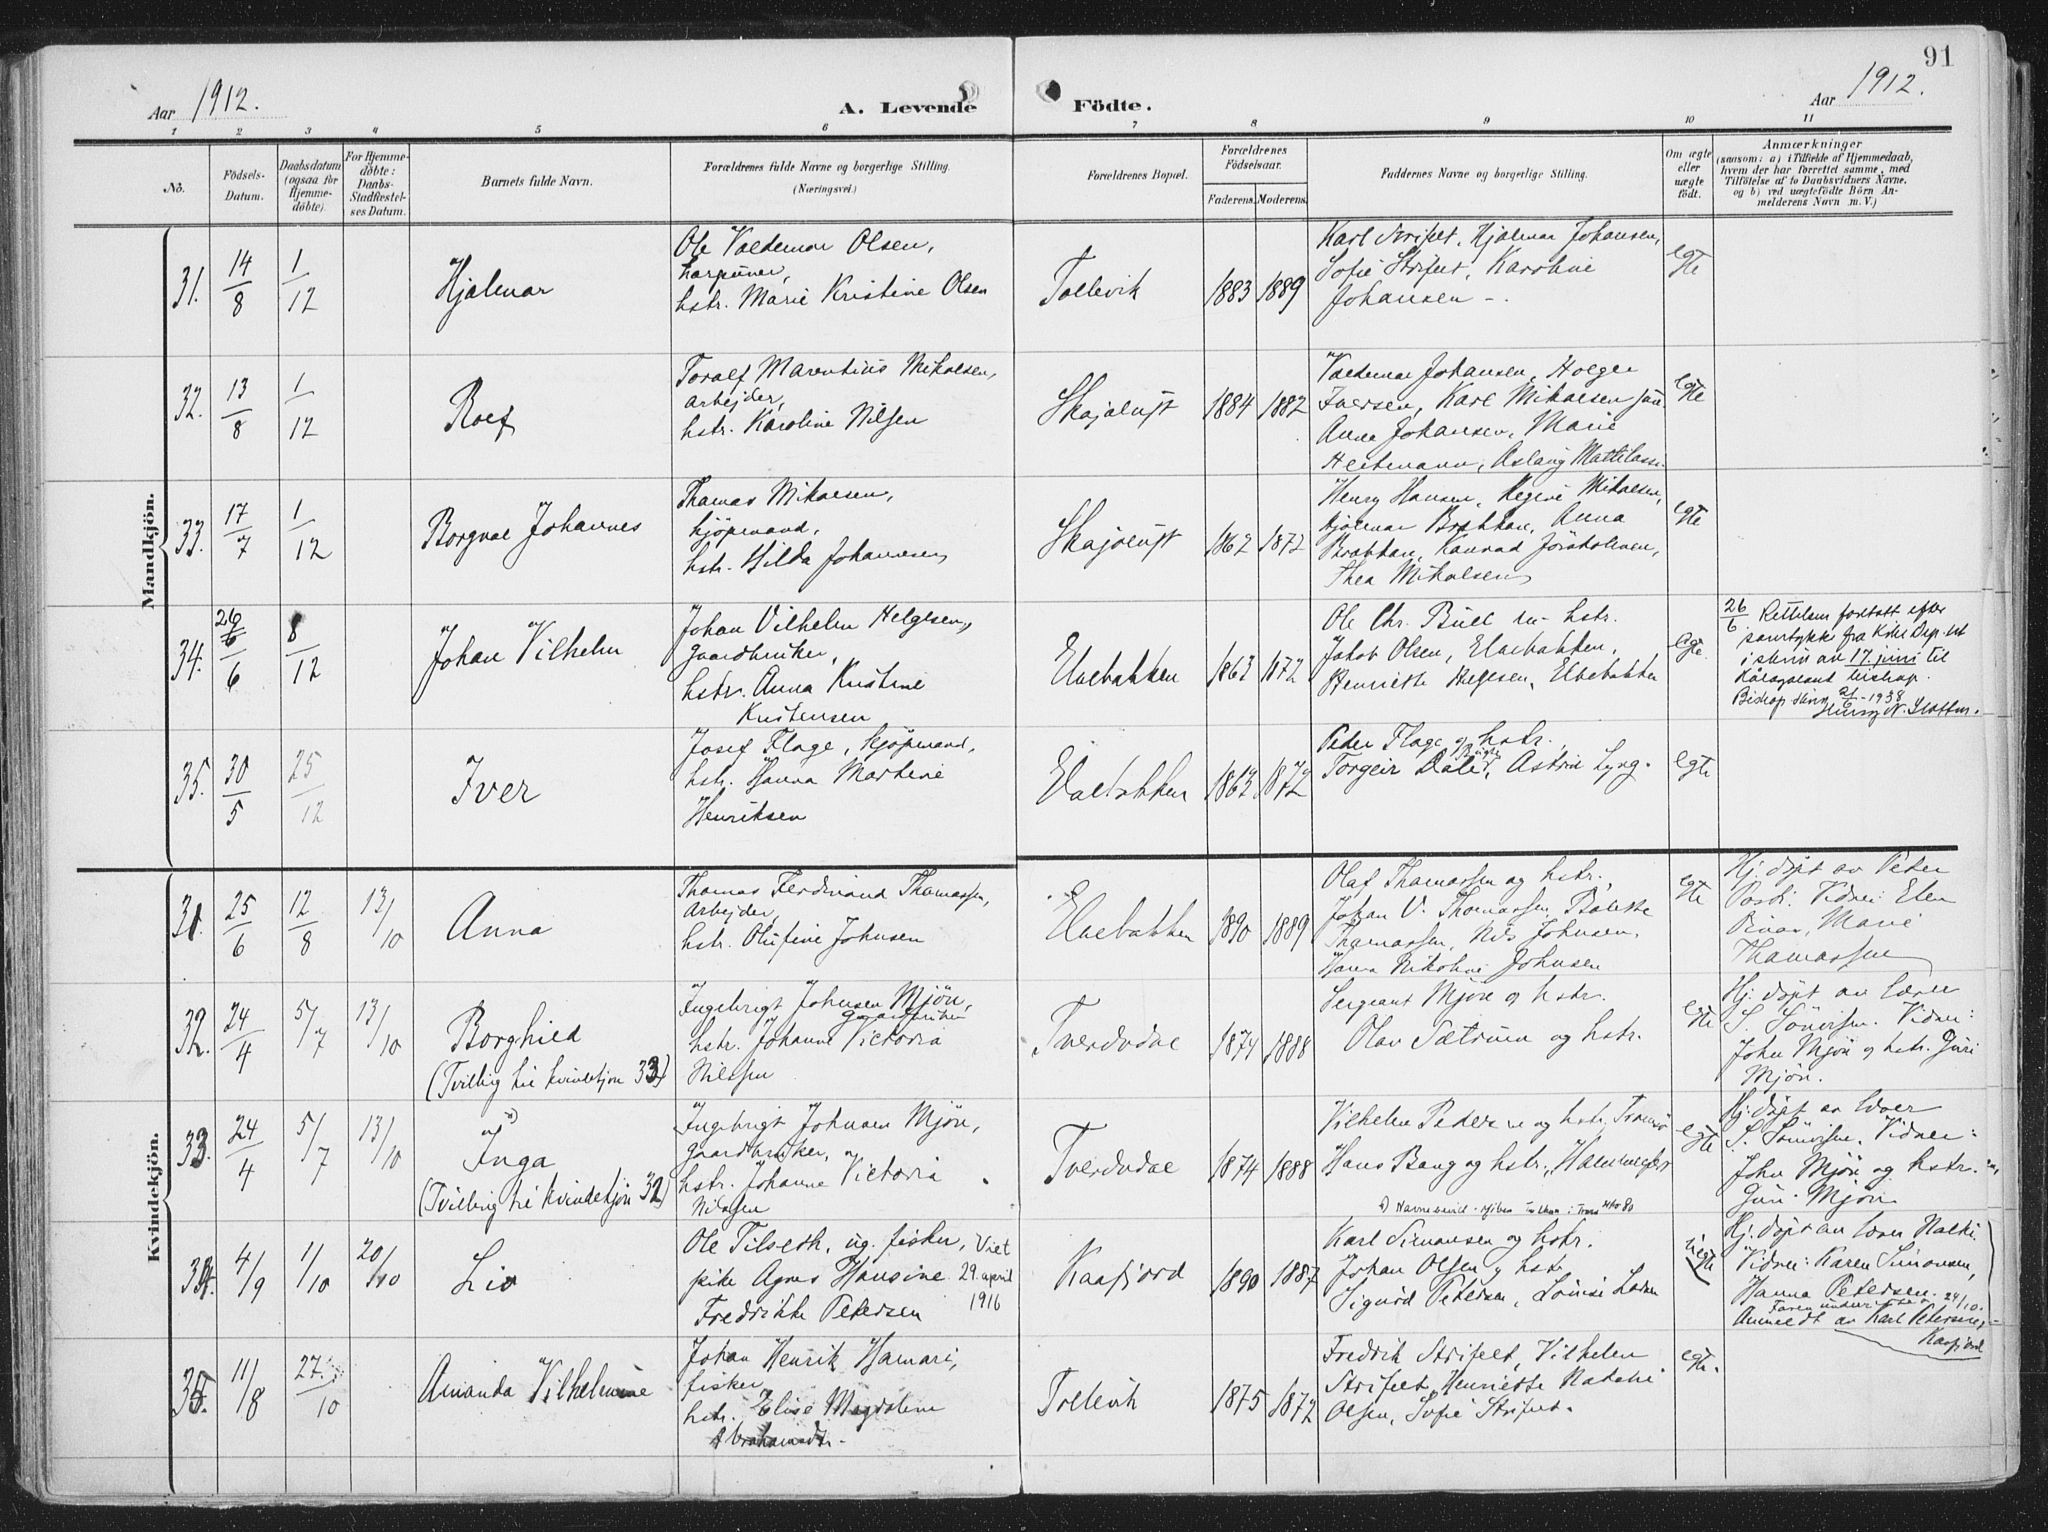 91
Aar 1912.
A. Levende Födte.
Aar 1912.
1 2 3 4 5 6 7 8 9 10 11
No.
Födsels-
Datum.
Daabsdatum
(ogsaa for
Hjemme-
döbte).
For Hjemme-
döbte:
Daabs-
Stadfæstel-
ses Datum.
Barnets fulde Navn.
Forældrenes fulde Navne og borgerlige Stilling.
(Næringsvei.)
Forældrenes Bopæl.
Forældrenes
Födselsaar.
Faderens. Moderens.
Faddernes Navne og borgerlige Stilling.
Om ægte
eller
uægte
födt.
Anmærkninger
(saasom: a) i Tilfælde af Hjemmedaab,
hvem der har forrettet samme, med
Tilföielse af to Daabsvidners Navne,
og b) ved uægtefödte Börn An-
melderens Navn m. V.)
Mandkjön.
31. 14/8 1/12 Hjalmar
Ole Valdemar Olsen,
harpuner,
hstr. Marie Kristine Olsen
Tallevik 1883 1889
Karl Strifelt, Hjalmar Johansen,
Sofie Strifelt, Karoline
Johansen -.
egte
32. 13/8 1/12 Rolf
Toralf Marentius Mikalsen,
arbejder,
hstr. Karoline Nilsen
Skajalugt 1884 1882
Valdemar Johansen, Holger
Iversen, Karl Mikalsen jun.
Anna Johansen, Marie
Heitmann, Aslaug Mattilassi
egte
33. 17/7 1/12 Borgval Johannes
Thomas Mikalsen,
kjöpmand,
hstr. Hilda Johannesen
Skajalugt 1862 1872
Henry Hansen, Regine Mikalsen,
Hjalmar Brakkan, Anna
Brakkan, Konrad
Thea Mikalsen
egte
34. 26/6 8/12 Johan Vilhelm
Johan Vilhelm Helgesen,
gaardbruker,
hstr. Anna Kristine
Kristensen
Elvebakken 1863 1872
Ole Chr. Bull m. hstr.
Jakob Olsen, Elvebakken,
Henriette Helgesen, Elvebakken
egte.
26/6 Rettelsen foretatt efter
samtykke fra Kirke Dep.tet
i skriv av 17. juni til
Hålogaland bispdop.
Bisdop skriv 21/6-1938
35. 30/5 25/12 Iver
Josef Flage, kjöpmand,
hstr. Hanna Martine
Henriksen
Elvebakken 1863 1872
Peder Flage og hstr.,
Torgeir Dale, Astrid Lyng.
egte
Kvindekjön.
31. 25/6 12/8 13/10 Anna
Thomas Ferdinand Thomassen,
Arbejder,
hstr. Olufine Johnsen
Elvebakken 1890 1889
Olaf Thomassen og hstr.,
Johan V. Thomassen, Bolette
Thomassen, Nils Johnsen,
Hanna Nikoline Johnsen
egte
Hj. döpt av Peder
Posti. Vidner: Elen
Marie
Thomassen
32. 24/4 5/7 13/10 Borghild
(Tvilling til kvindekjön 33)
Ingebrigt Johnsen Mjön,
gaardbruker
hstr. Johanne Victoria
Nilssen
Tverdvdal 1874 1888
Sergeant Mjöen og hstr.
Olav Sætrum og hstr.
egte
Hj. döpt av lærer
S. Simonsen. Vidner:
John Mjön og hstr. Guri
Mjön.
33. 24/4 5/7 13/10 Inga
(Tvilling til kvindekjön 32)
Ingebrigt Johnsen Mjön,
gaardbruker, og
hstr. Johanne Victoria
Nilssen
Tverdvdal 1874 1888
Vilhelm Pedersen og hstr, Tromsö
Hans Bang og hstr., Hammerfest
egte
Hj. döpt av lærer
S. Simonsen. Vidner:
John Mjön og hstr.
Guri Mjön.
34. 4/9 1/10 20/10 Liv
Ole Tilseth, ug. fisker, Viet
pike Agnes Hansine 29. april
Fredrikke Petersen 1916
Kaafjord 1890 1887
Karl Simonsen og hstr.
Johan Olsen og hstr
Sigurd Petersen, Lovise Larsen
uegte
Hj. döpt av lærer
Vidner: Karen Simonsen,
Hanna Petersen. 24/10.
Anmeldt av Karl Petersen,
Kaafjord
35. 11/8 27/10 Amanda Vilhelmine
Johan Henrik Hamari,
fisker
hstr. Elise Magdalena
Abrahamsdtr.
Tallevik 1875 1872
Fredrik Strifelt, Vilhelm
Strifelt, Henriette Natalie
Olsen, Sofie Strifelt.
egte.